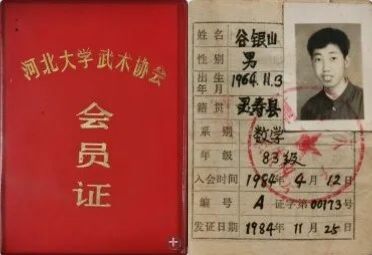 河北大学武术协会
会员证
姓名 谷银山
性别 男
出生年月 1964.11.3
籍贯 灵寿县
系别 数学
年级 83级
入会时间 1984年4月12日
编号 A 证字第00173号
发证日期 1984年11月25日